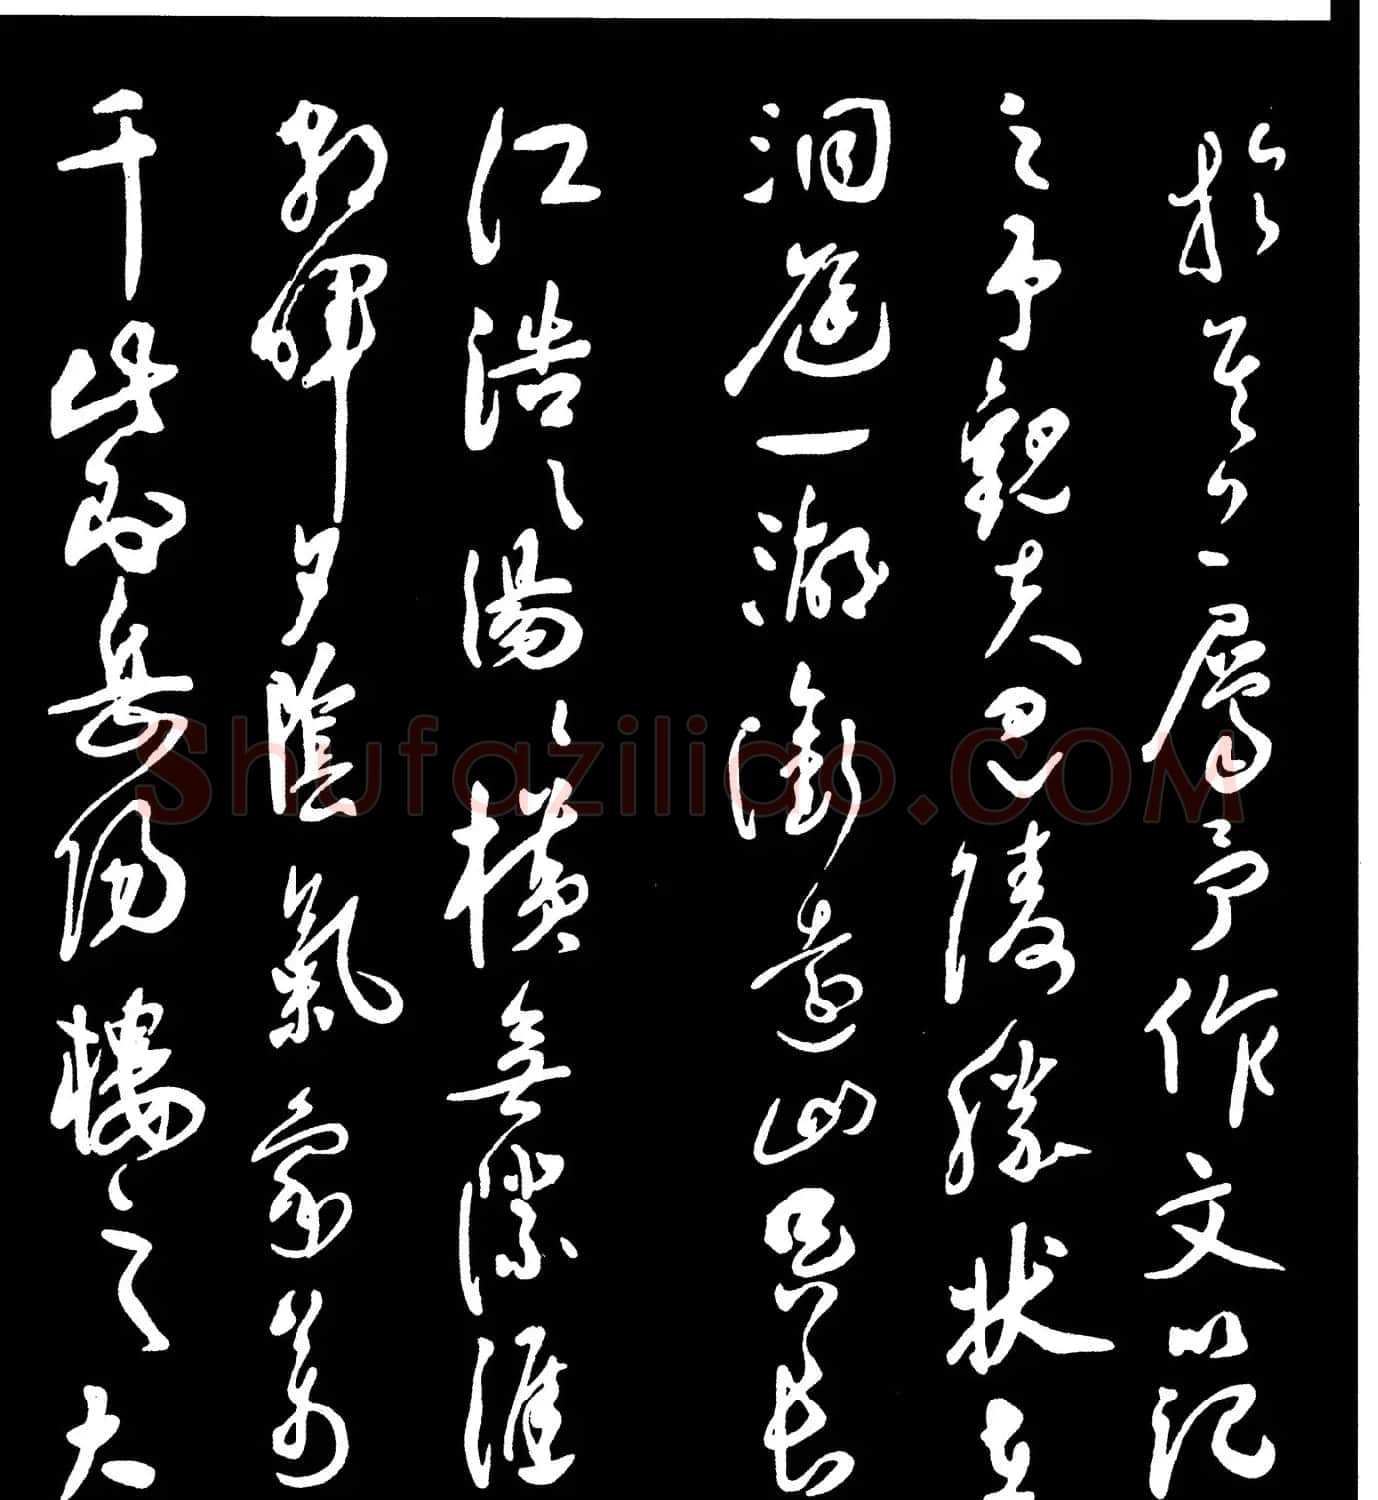 於其上屬予作文以記
之予觀夫巴陵勝狀在
洞庭一湖銜遠山吞長
江浩〻湯〻橫無際涯
朝暉夕陰氣象萬
千此則岳陽樓之大
Shufaziliao.COM